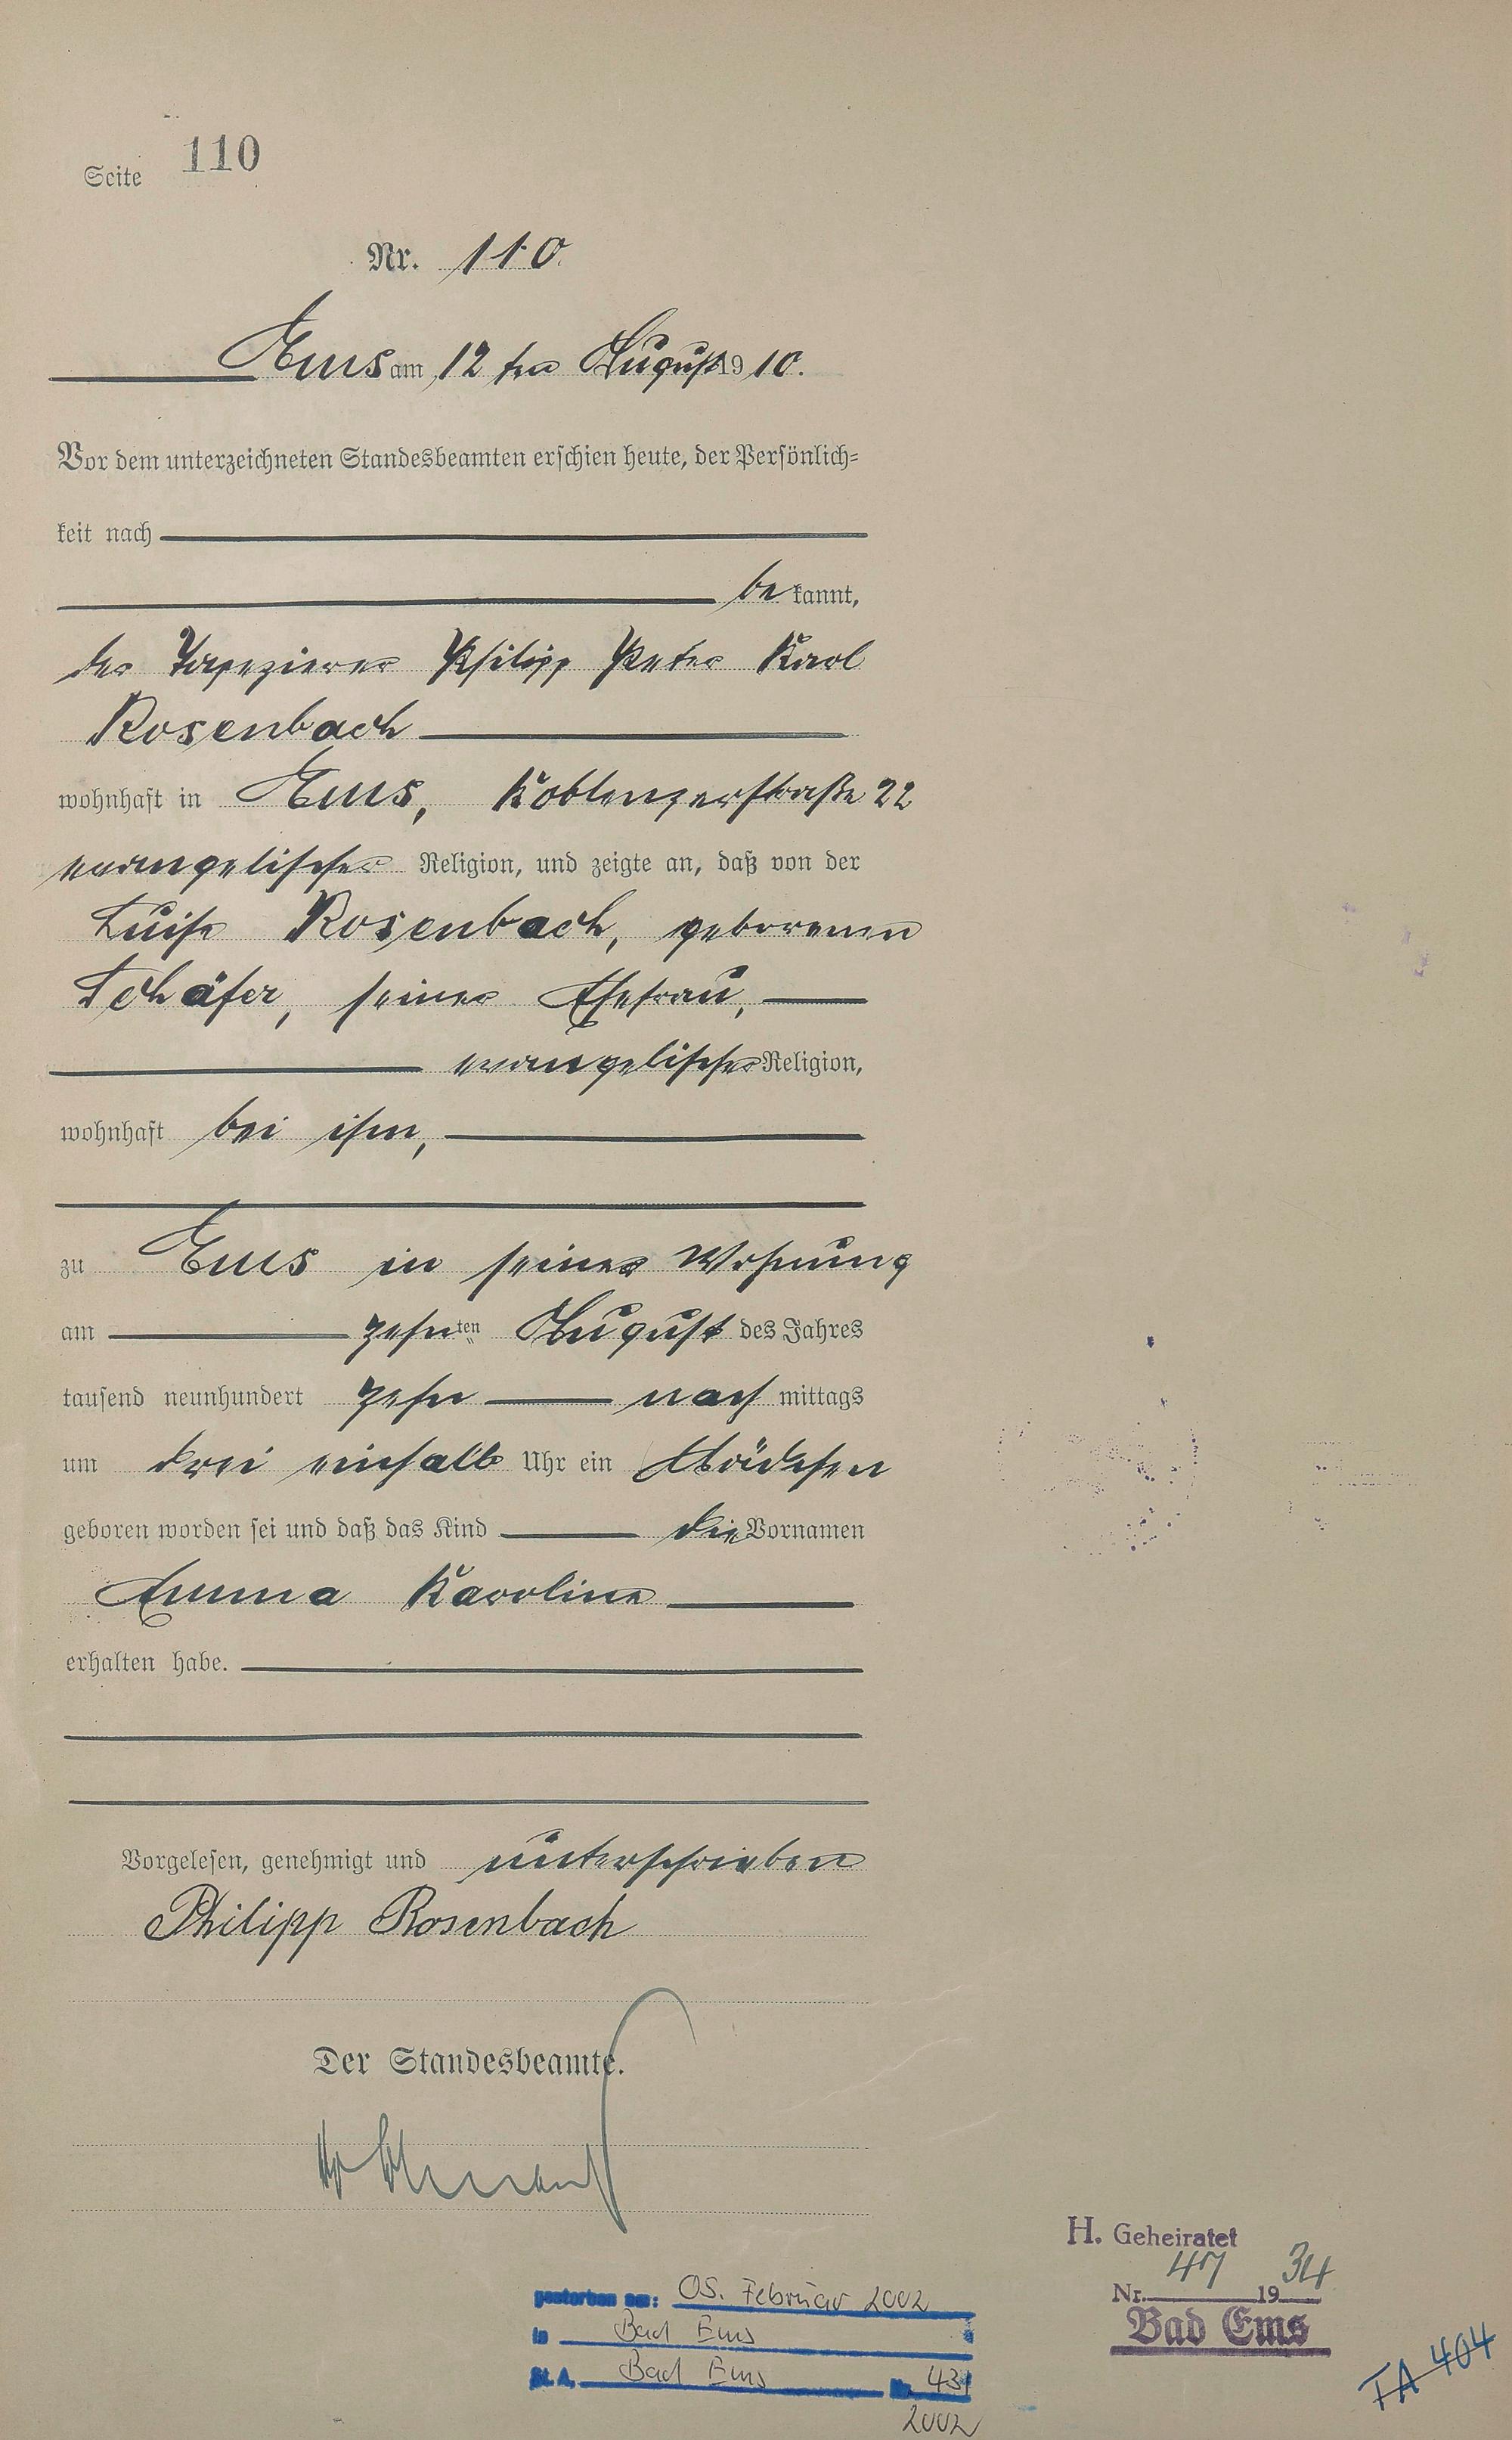 Seite 110
Nr. 110.
Ems am 12ten August 1910.
Vor dem unterzeichneten Standesbeamten erschien heute, der Persönlich=
keit nach
bekannt,
der Tapezierer Philipp Peter Karl
Rosenbach
wohnhaft in Ems, Koblenzerstraße 22
evangelischer Religion, und zeigte an, daß von der
Luise Rosenbach, geborenen
Schäfer, seiner Ehefrau,
evangelischer Religion,
wohnhaft bei ihm,
zu Ems in seiner Wohnung
am zehnten August des Jahres
tausend neunhundert zehn nachmittags
um drei einhalb Uhr ein Mädchen
geboren worden sei und daß das Kind die Vornamen
Emma Karoline
erhalten habe.
Vorgelesen, genehmigt und unterschrieben
Philipp Rosenbach
Der Standesbeamte.
H. Geheiratet
Nr. 47 1934
Bad Ems
gestorben am: 05. Februar 2002
in Bad Ems
St. A. Bad Ems Nr. 431
2002
FA 404